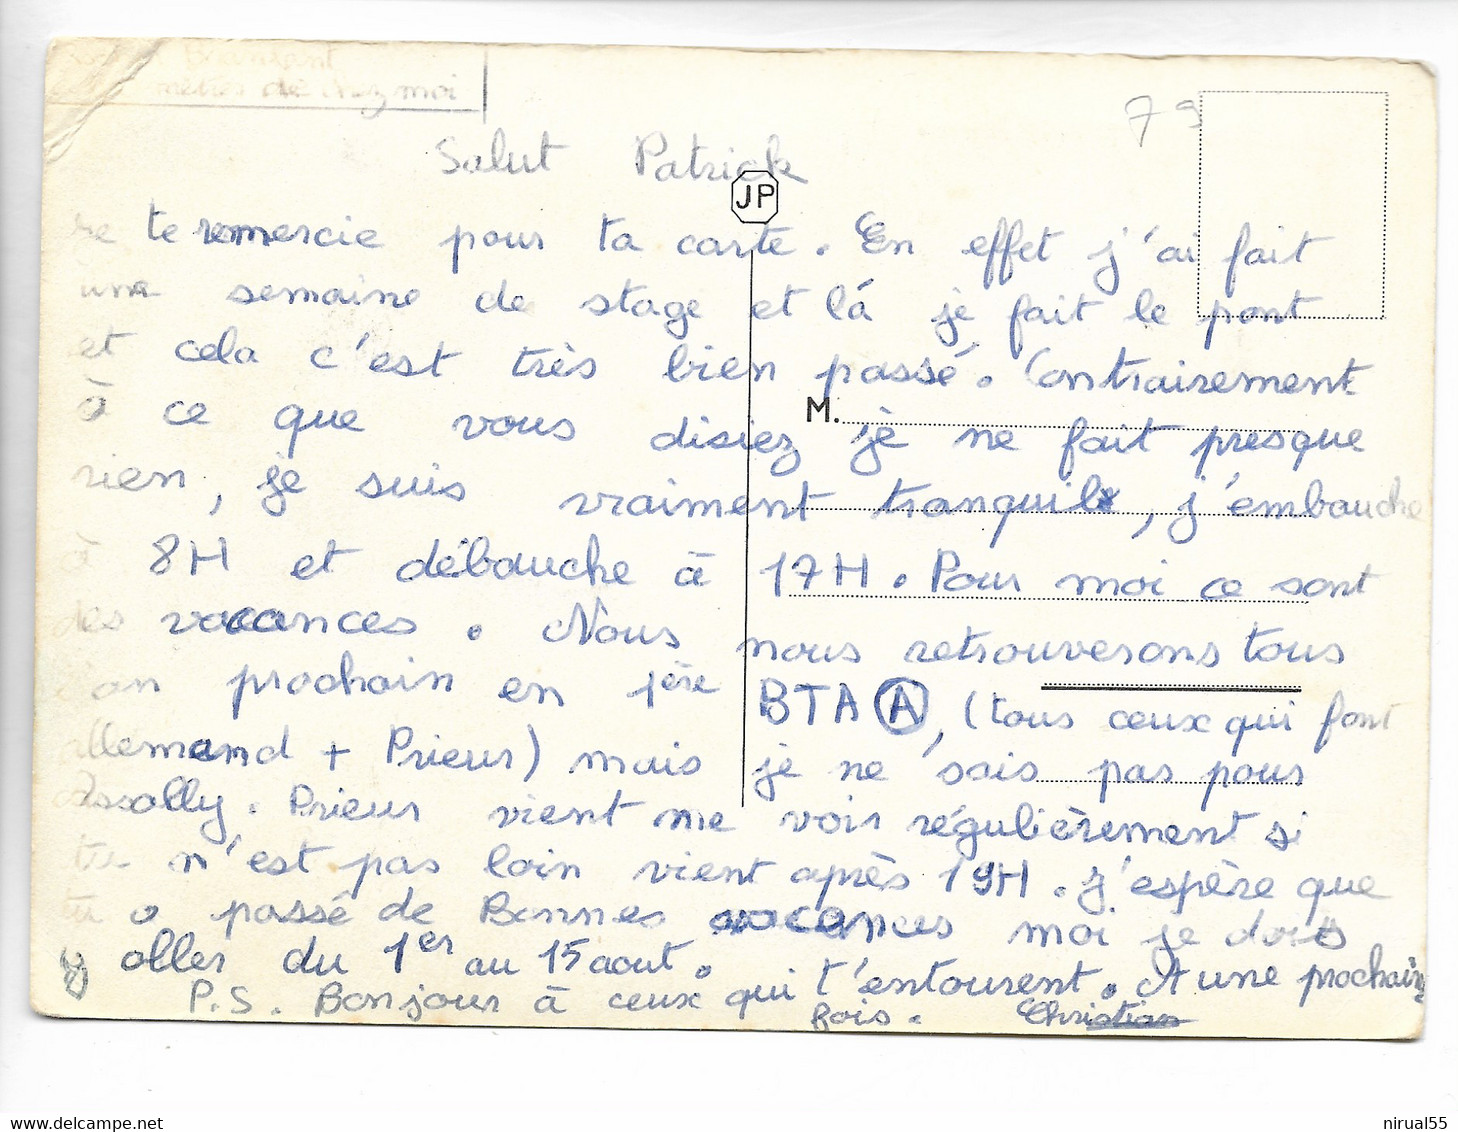 mètres de chez moi
79
Salut Patrick
JP
te remercie pour ta carte. En effet j'ai fait
une semaine de stage et là je fait le pont
et cela c'est très bien passé. Contrairement
à ce que vous disiez je ne fait presque
M.
rien, je suis vraiment tranquil, j'embauche
à 8H et débauche à 17H. Pour moi ce sont
des vacances. Nous nous retrouverons tous
l'an prochain en 1ère BTA A, (tous ceux qui font
allemand + Prieur) mais je ne sais pas pour
Assolly. Prieur vient me voir régulièrement si
tu n'est pas loin vient après 19H. J'espère que
tu a passé de Bonnes vacances moi je dois
y aller du 1er au 15 aout. A une prochaine
P.S. Bonjour à ceux qui t'entourent. fois. Christian
https://www.delcampe.net
nirual55